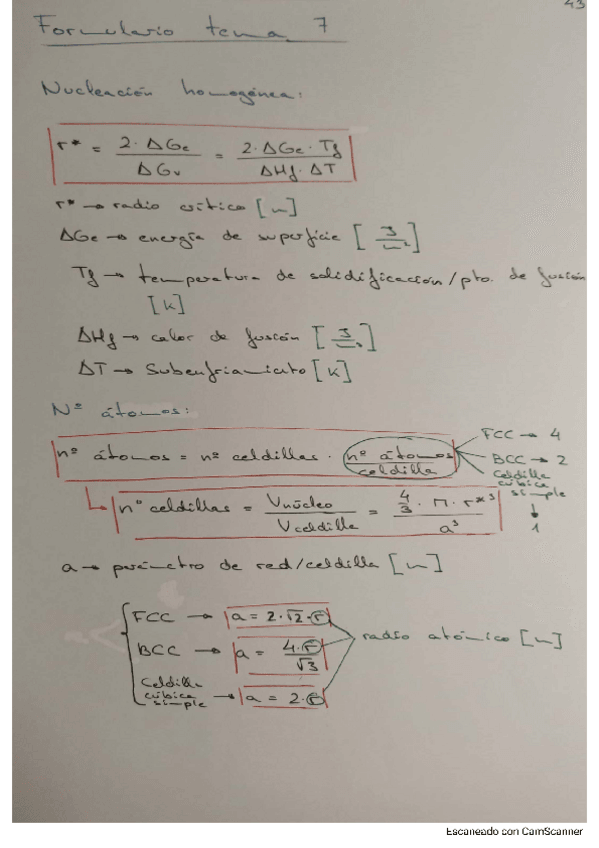 43
Formulario tema 7
Nucleación homogénea:
r* = 2·ΔGe / ΔGv = 2·ΔGe·Tf / ΔHf·ΔT
r* → radio crítico [m]
ΔGe → energía de superficie [J/m²]
Tf → temperatura de solidificación/pto. de fusión
[K]
ΔHf → calor de fusión [J/m³]
ΔT → Subenfriamiento [K]
Nº átomos:
nº átomos = nº celdillas · nº átomos / celdilla
FCC → 4
BCC → 2
Celdilla
cúbica
simple
↓
1
nº celdillas = Vnúcleo / Vceldilla = 4/3 · π · r*³ / a³
a → parámetro de red/celdilla [m]
FCC → a = 2·√2·r
BCC → a = 4·r / √3
radio atómico [m]
Celdilla
cúbica
simple → a = 2·r
Escaneado con CamScanner